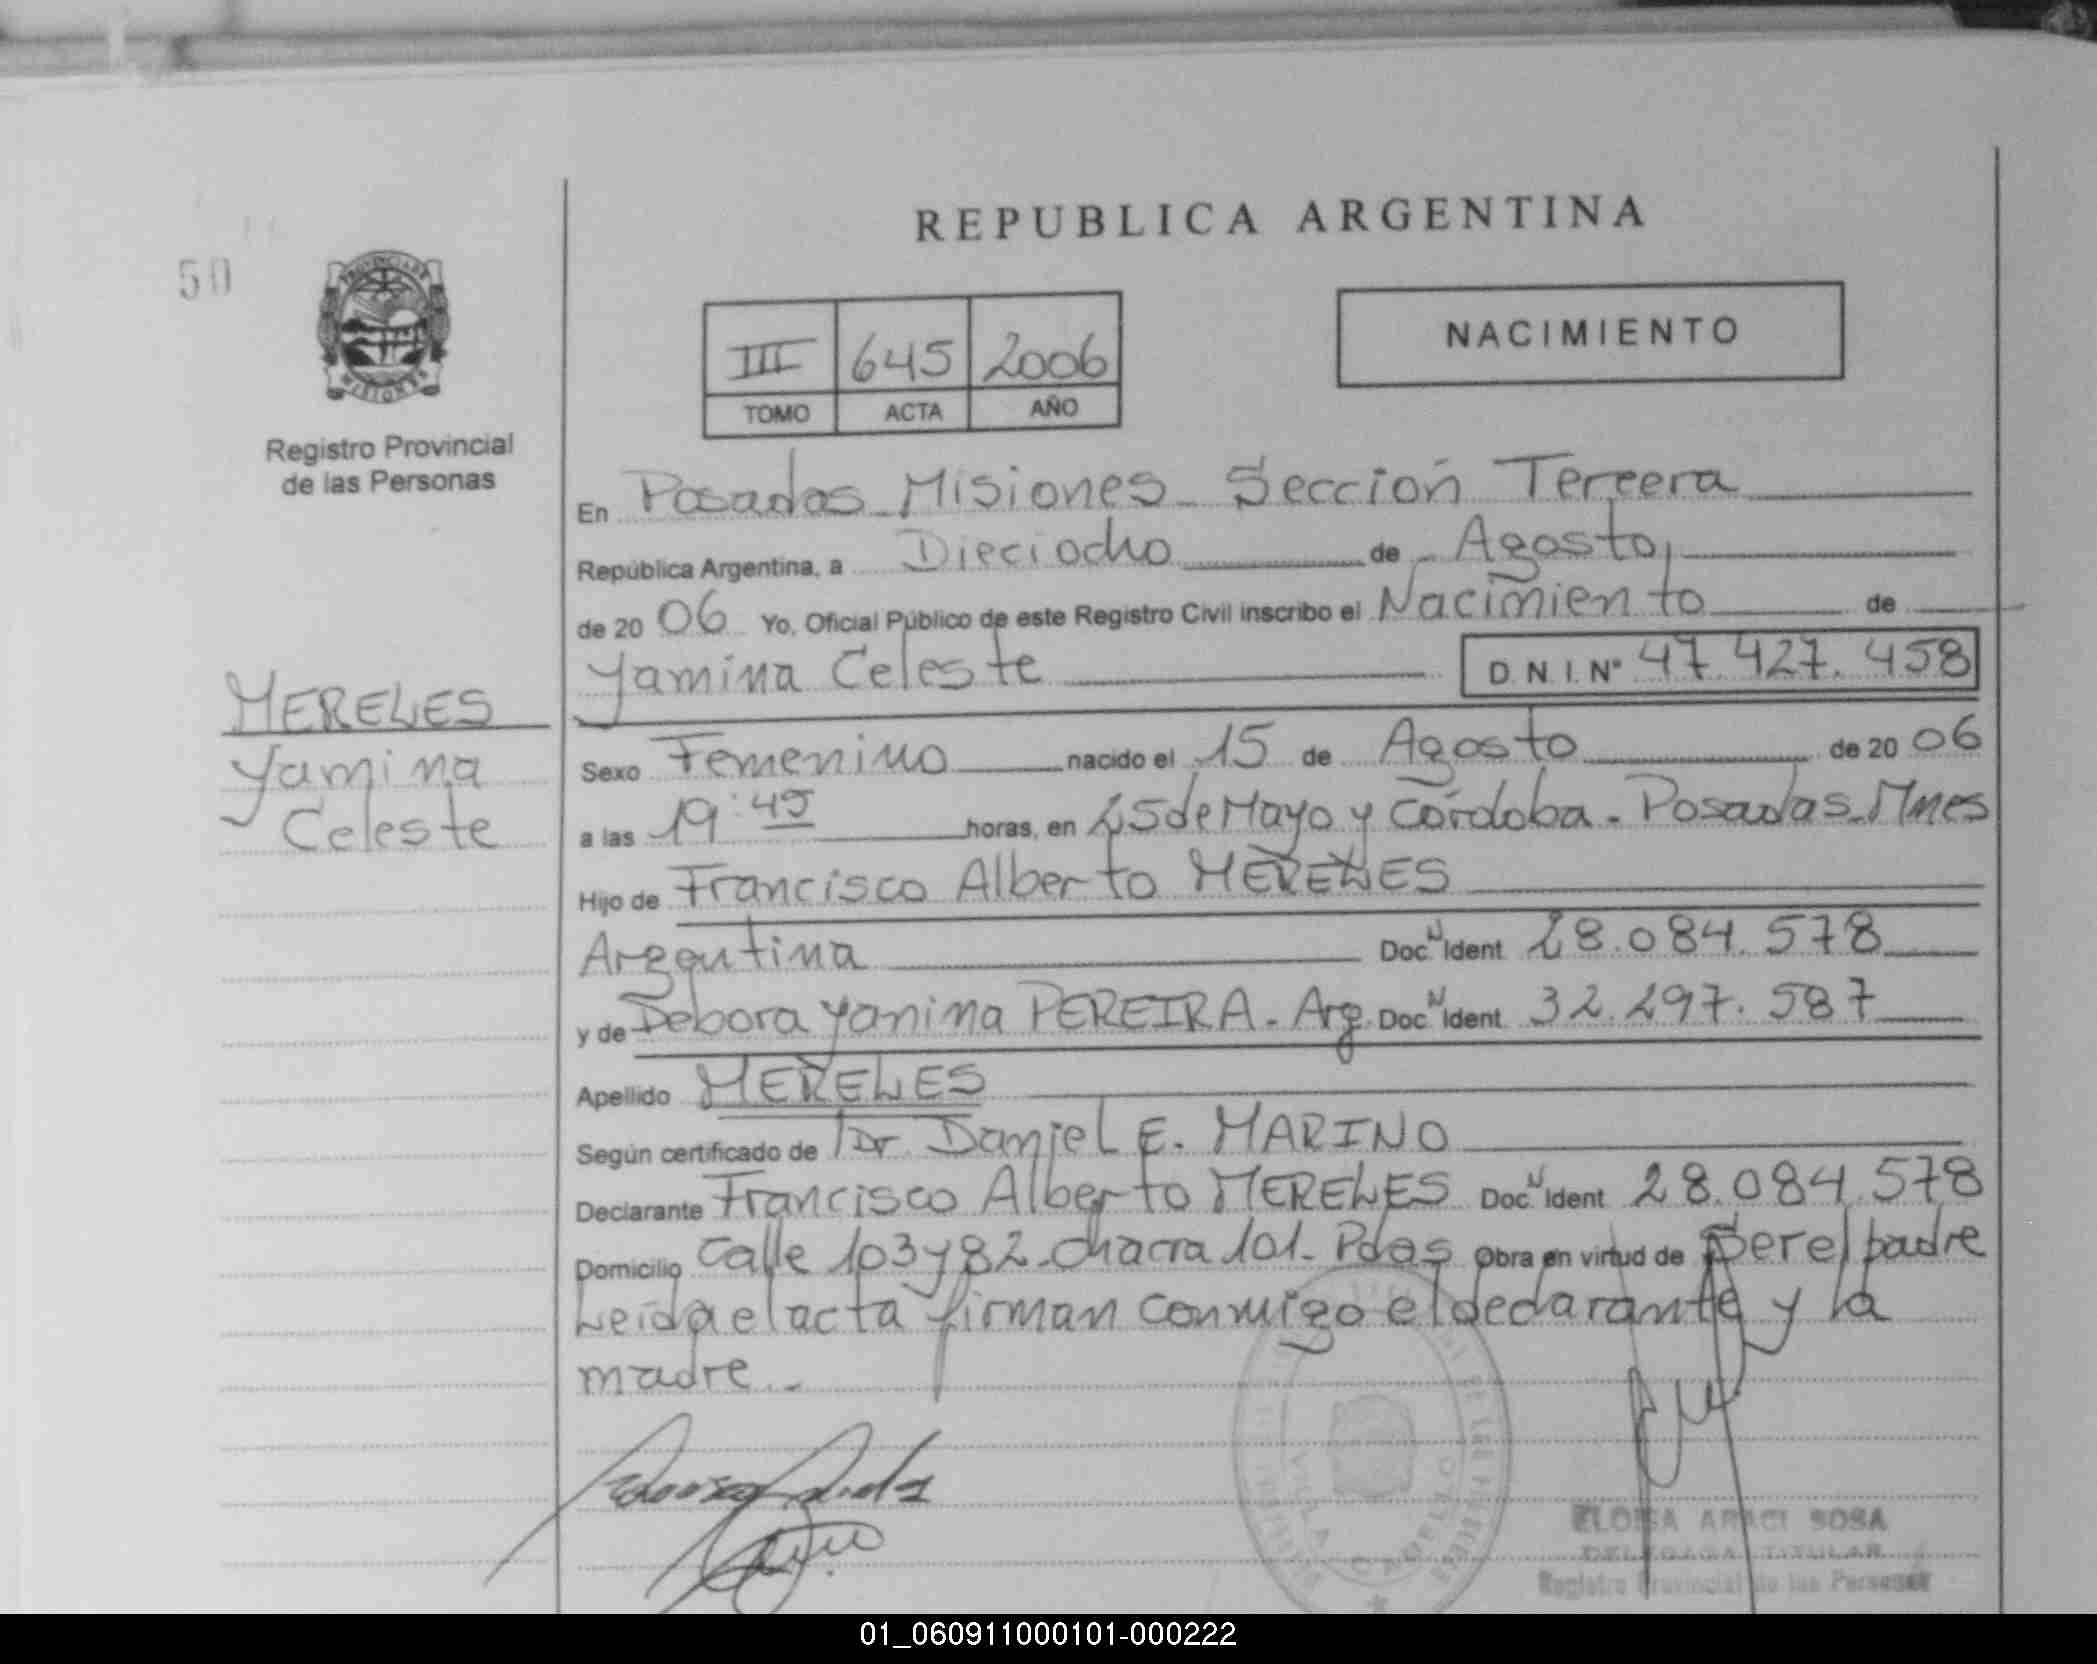 REPUBLICA ARGENTINA
50
PROVINCIA DE
MISIONES
Registro Provincial
de las Personas
III 645 2006
TOMO ACTA AÑO
NACIMIENTO
En Posadas Misiones Sección Tercera
República Argentina, a Dieciocho de Agosto
de 20 06 Yo, Oficial Público de este Registro Civil inscribo el Nacimiento de
Yamina Celeste D.N.I. Nº 47.427.458
MERELES
Yamina
Celeste
Sexo Femenino nacido el 15 de Agosto de 20 06
a las 19:45 horas, en 25 de Mayo y Córdoba - Posadas - Mnes
Hijo de Francisco Alberto MERELES
Argentina Doc. N Ident 28.084.578
y de Debora Yanina PEREIRA - Arg. Doc. N Ident 32.297.587
Apellido MERELES
Según certificado de Dr. Daniel E. MARINO
Declarante Francisco Alberto MERELES Doc. N Ident 28.084.578
Domicilio Calle 103 y 82 - chacra 101 - Pdas Obra en virtud de Ser el padre
Leida el acta firman conmigo el declarante y la
madre.-
VILLA CABELLO
ELOISA ARACI SOSA
DELEGADA TITULAR
Registro Provincial de las Personas
01_060911000101-000222